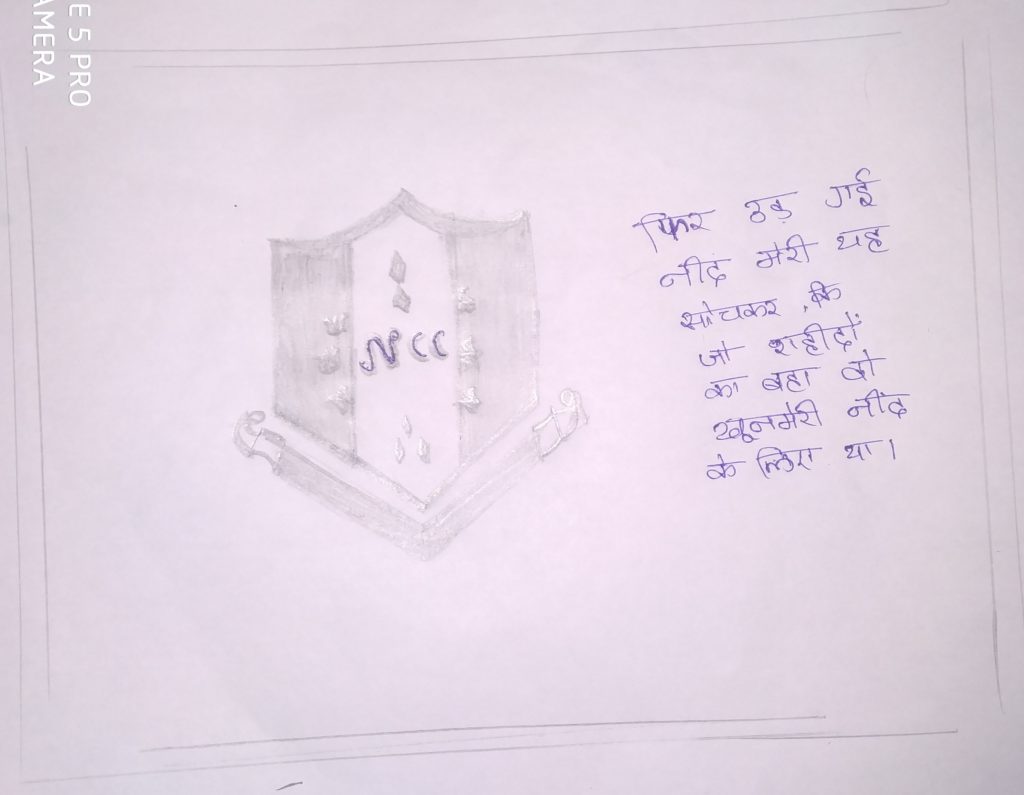 E 5 PRO
AMERA
NCC
फिर उड़ गई
नींद मेरी यह
सोचकर, कि
जो शहीदों
का बहा वो
खूनमेरी नींद
के लिए था।